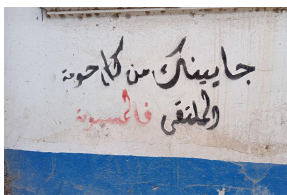 جايينك من كل حومة
الملتقى فالمسيرة